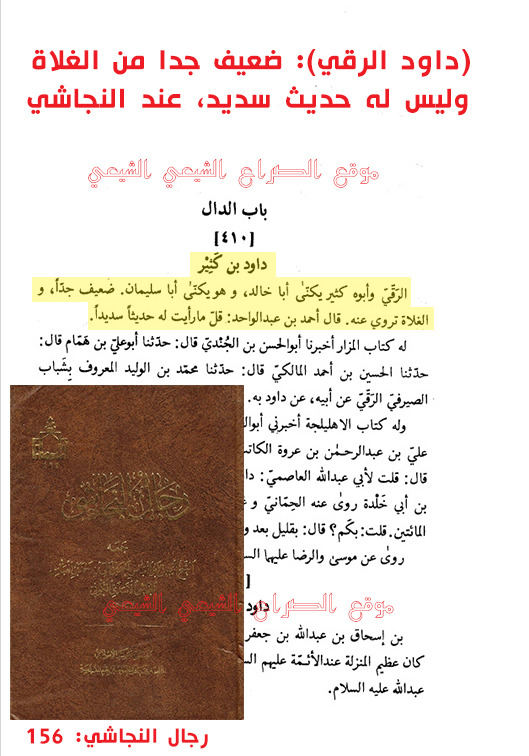 (داود الرقي): ضعيف جدا من الغلاة
وليس له حديث سديد، عند النجاشي
موقع الصراع الشيعي الشيعي
باب الدال
[٤١٠]
داود بن كَثِيْر
الرَقّيّ وأبوه كثير يكنّى أبا خالد، و هو يكنّى أبا سليمان. ضعيف جدّاً، و
الغلاة تروي عنه. قال أحمد بن عبدالواحد: قلّ مارأيت له حديثاً سديداً.
له كتاب المزار أخبرنا أبوالحسن بن الجُنْديّ قال: حدّثنا أبوعليّ بن هَمّام قال:
حدّثنا الحسين بن أحمد المالكيّ قال: حدّثنا محمّد بن الوليد المعروف بِشَباب
الصيرفيّ الرَقّيّ عن أبيه، عن داود به.
وله كتاب الاهليلجة أخبرني أبوال
عليّ بن عبدالرحمٰن بن عروة الكاتب
قال: قلت لأبي عبدالله العاصميّ: دا
بن أبي خَلْدة روىٰ عنه الحِمّانيّ و
المائتين. قلت: بكم؟ قال: بقليل بعد و
روىٰ عن موسىٰ والرضا عليهما الس
رجال النجاشي
[
داود
موقع الصراع الشيعي الشيعي
بن إسحاق بن عبدالله بن جعفر
كان عظيم المنزلة عندالأئمّة عليهم الس
عبدالله عليه السلام.
رجال النجاشي: 156